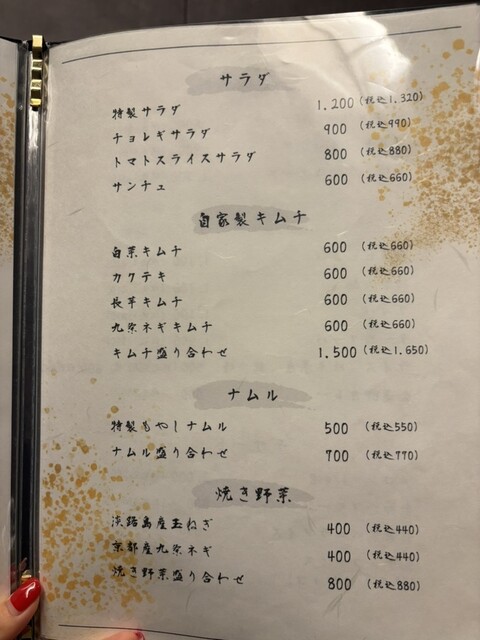 サラダ
特製サラダ 1.200(税込1.320)
チョレギサラダ 900 (税込990)
トマトスライスサラダ 800 (税込880)
サンチュ 600 (税込660)
自家製キムチ
白菜キムチ 600 (税込660)
カクテキ 600 (税込660)
長芋キムチ 600 (税込660)
九条ネギキムチ 600 (税込660)
キムチ盛り合わせ 1.500(税込1.650)
ナムル
特製もやしナムル 500 (税込550)
ナムル盛り合わせ 700 (税込770)
焼き野菜
淡路島産玉ねぎ 400 (税込440)
京都産九条ネギ 400 (税込440)
焼き野菜盛り合わせ 800 (税込880)